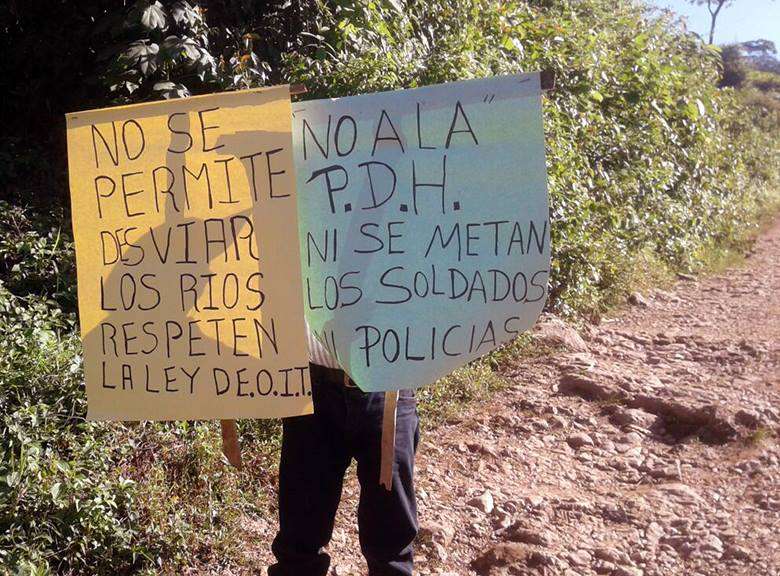 NO SE
PERMITE
DESVIAR
LOS RIOS
RESPETEN
LA LEY DE.O.I.T.
"NO A LA"
P.D.H.
NI SE METAN
LOS SOLDADOS
NI POLICIAS